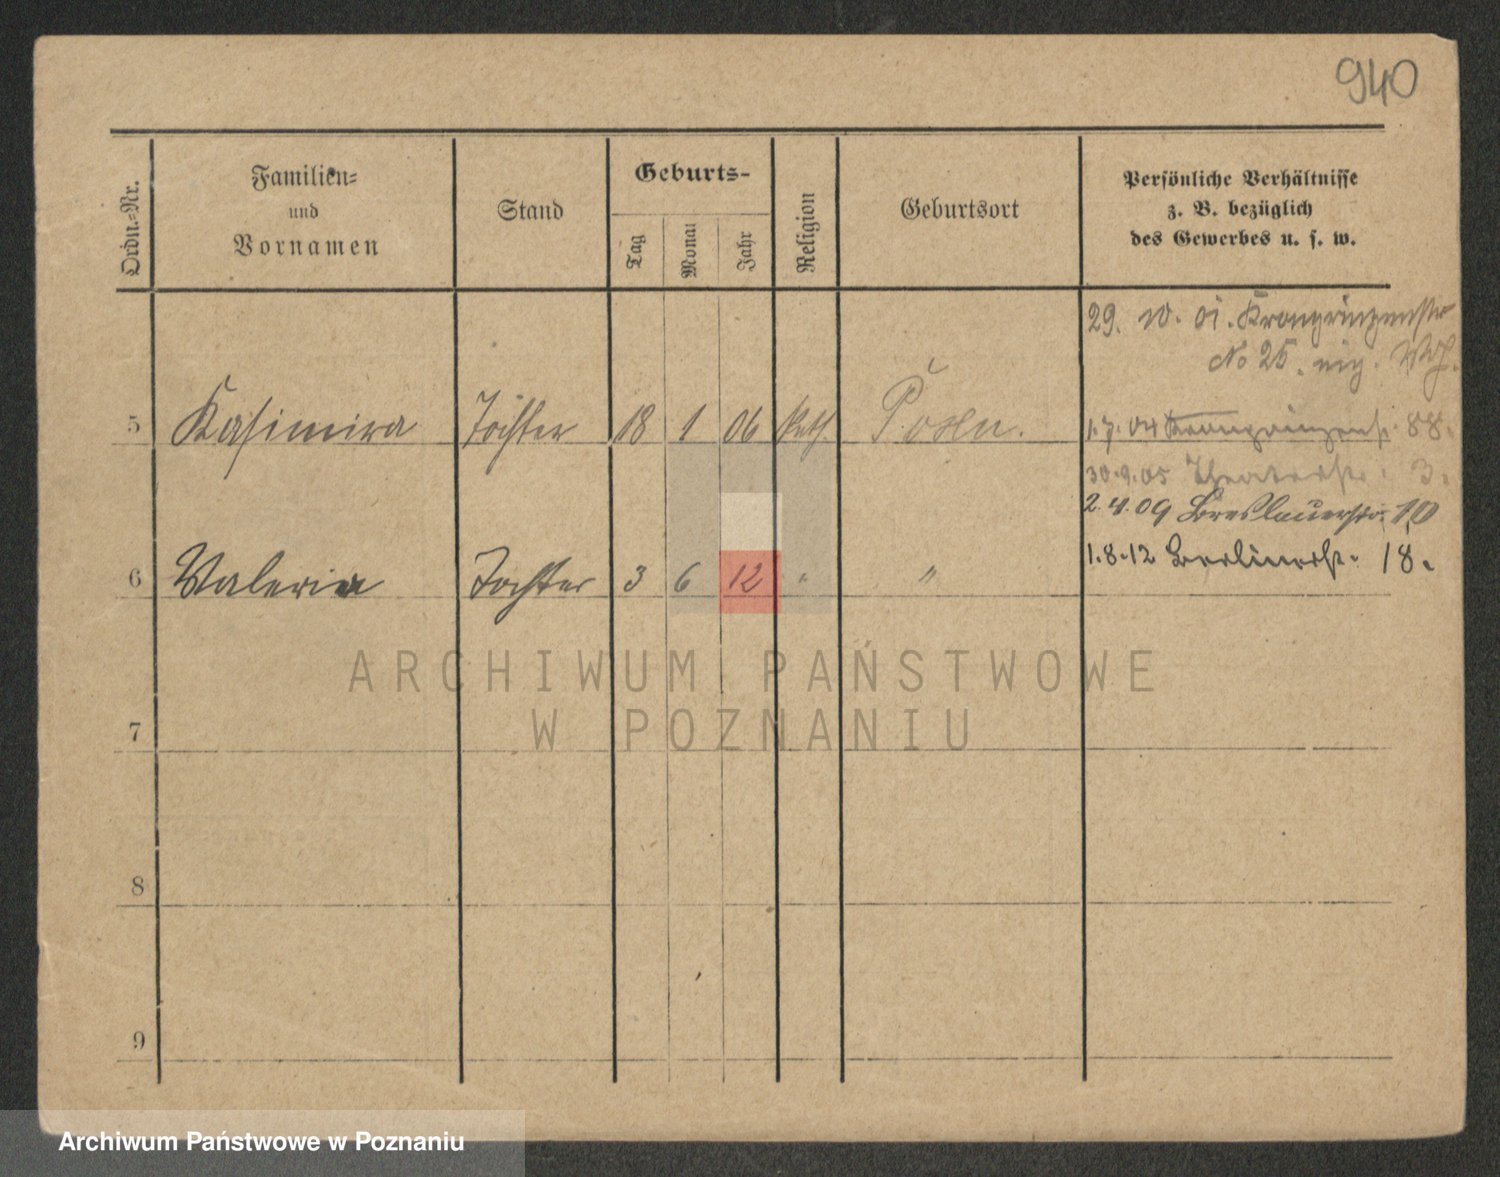 940
Ordn.-Nr.
Familien-
und
Vornamen
Stand
Geburts-
Tag
Monat
Jahr
Religion
Geburtsort
Persönliche Verhältnisse
z. B. bezüglich
des Gewerbes u. s. w.
29. 10. 01. Kronprinzenstr
No 25.
5 Kasimira Tochter 18 1 06 kath. Posen.
1.7.04 Kronprinzenst. 88.
30.9.05 Theaterstr. 3.
2.4.09 Breslauerstr. 10
1.8.12 Berlinerstr. 18.
6 Valeria Tochter 3 6 12 " "
ARCHIWUM PAŃSTWOWE
W POZNANIU
7
8
9
Archiwum Państwowe w Poznaniu